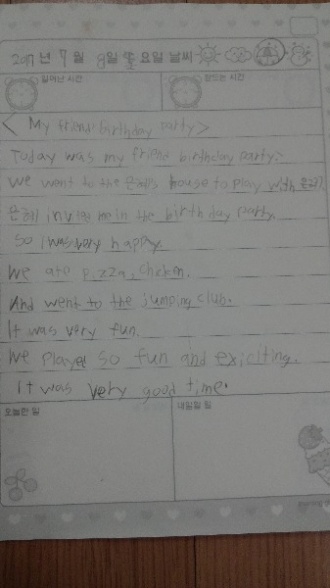 2017 년 7 월 8일 토 요일 날씨
일어난 시간 잠드는 시간
< My friend birthday party>
Today was my friend birthday party.
We went to the 은혜's house to play with 은혜
은혜 invite me in the birthday party.
so I was very happy.
We ate pizza, chicken.
And went to the jumping club.
It was very fun.
We player so fun and exiciting.
It was very good time.
오늘한 일 내일할 일